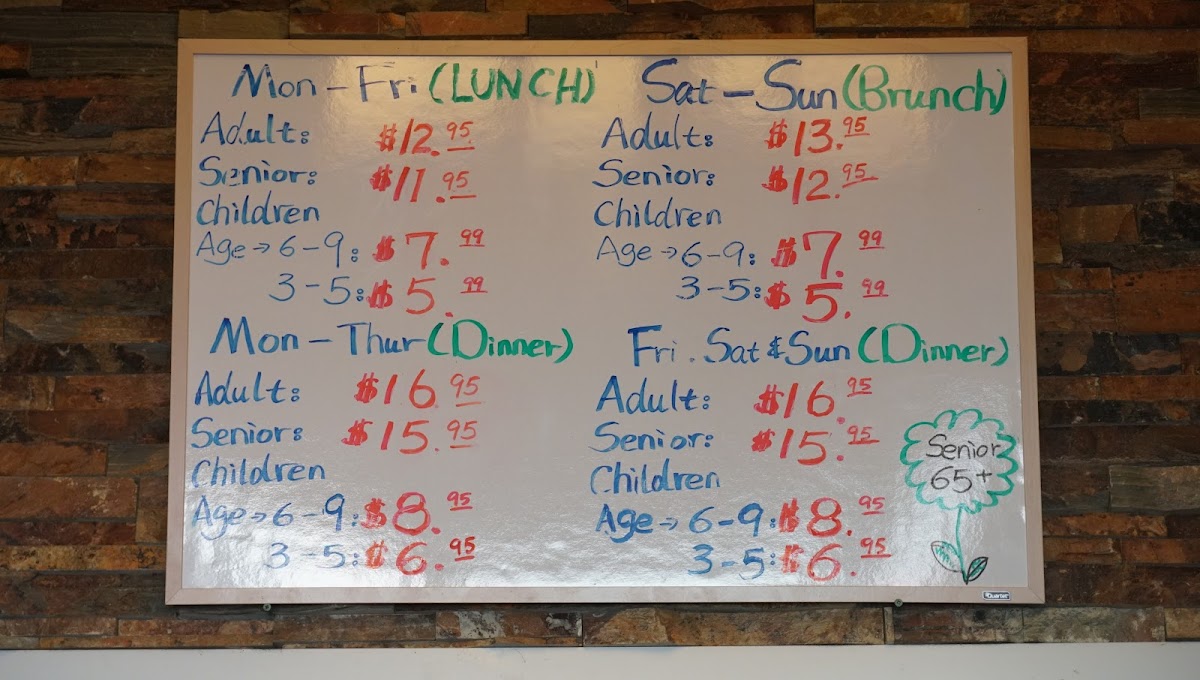 Mon - Fri (LUNCH)
Adult: $12.95
Senior: $11.95
Children
Age → 6-9: $7.99
3-5: $5.99
Sat - Sun (Brunch)
Adult: $13.95
Senior: $12.95
Children
Age → 6-9: $7.99
3-5: $5.99
Mon - Thur (Dinner)
Adult: $16.95
Senior: $15.95
Children
Age → 6-9: $8.95
3-5: $6.95
Fri. Sat & Sun (Dinner)
Adult: $16.95
Senior: $15.95
Children
Age → 6-9: $8.95
3-5: $6.95
Senior
65+
Quartet